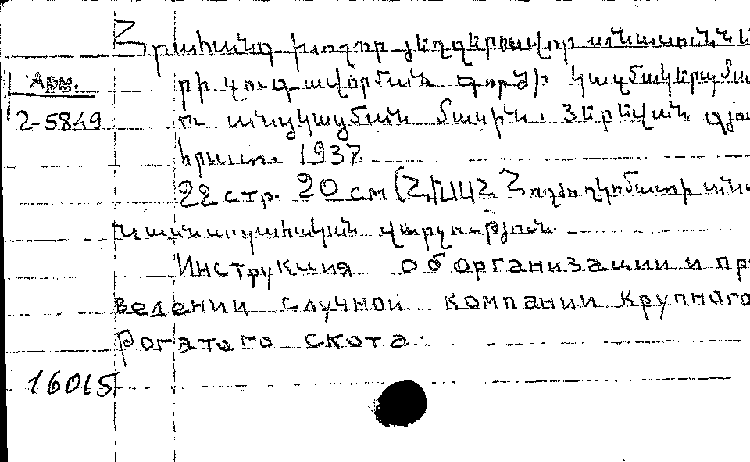 Հրահանգ խոշոր յեղջերավոր անասունն
Арм.
րի զուգավորման գործի կազմակերպմա
2-5849
ու անցկացման մասին. Յերեվան գյու
հրատ. 1937
22 стр. 20 см (ՀԽՍՀ Հողժողկոմատի անա
նաբուծական վարչություն
Инструкция об организации и про
ведении случной компании крупного
рогатого скота.
16015